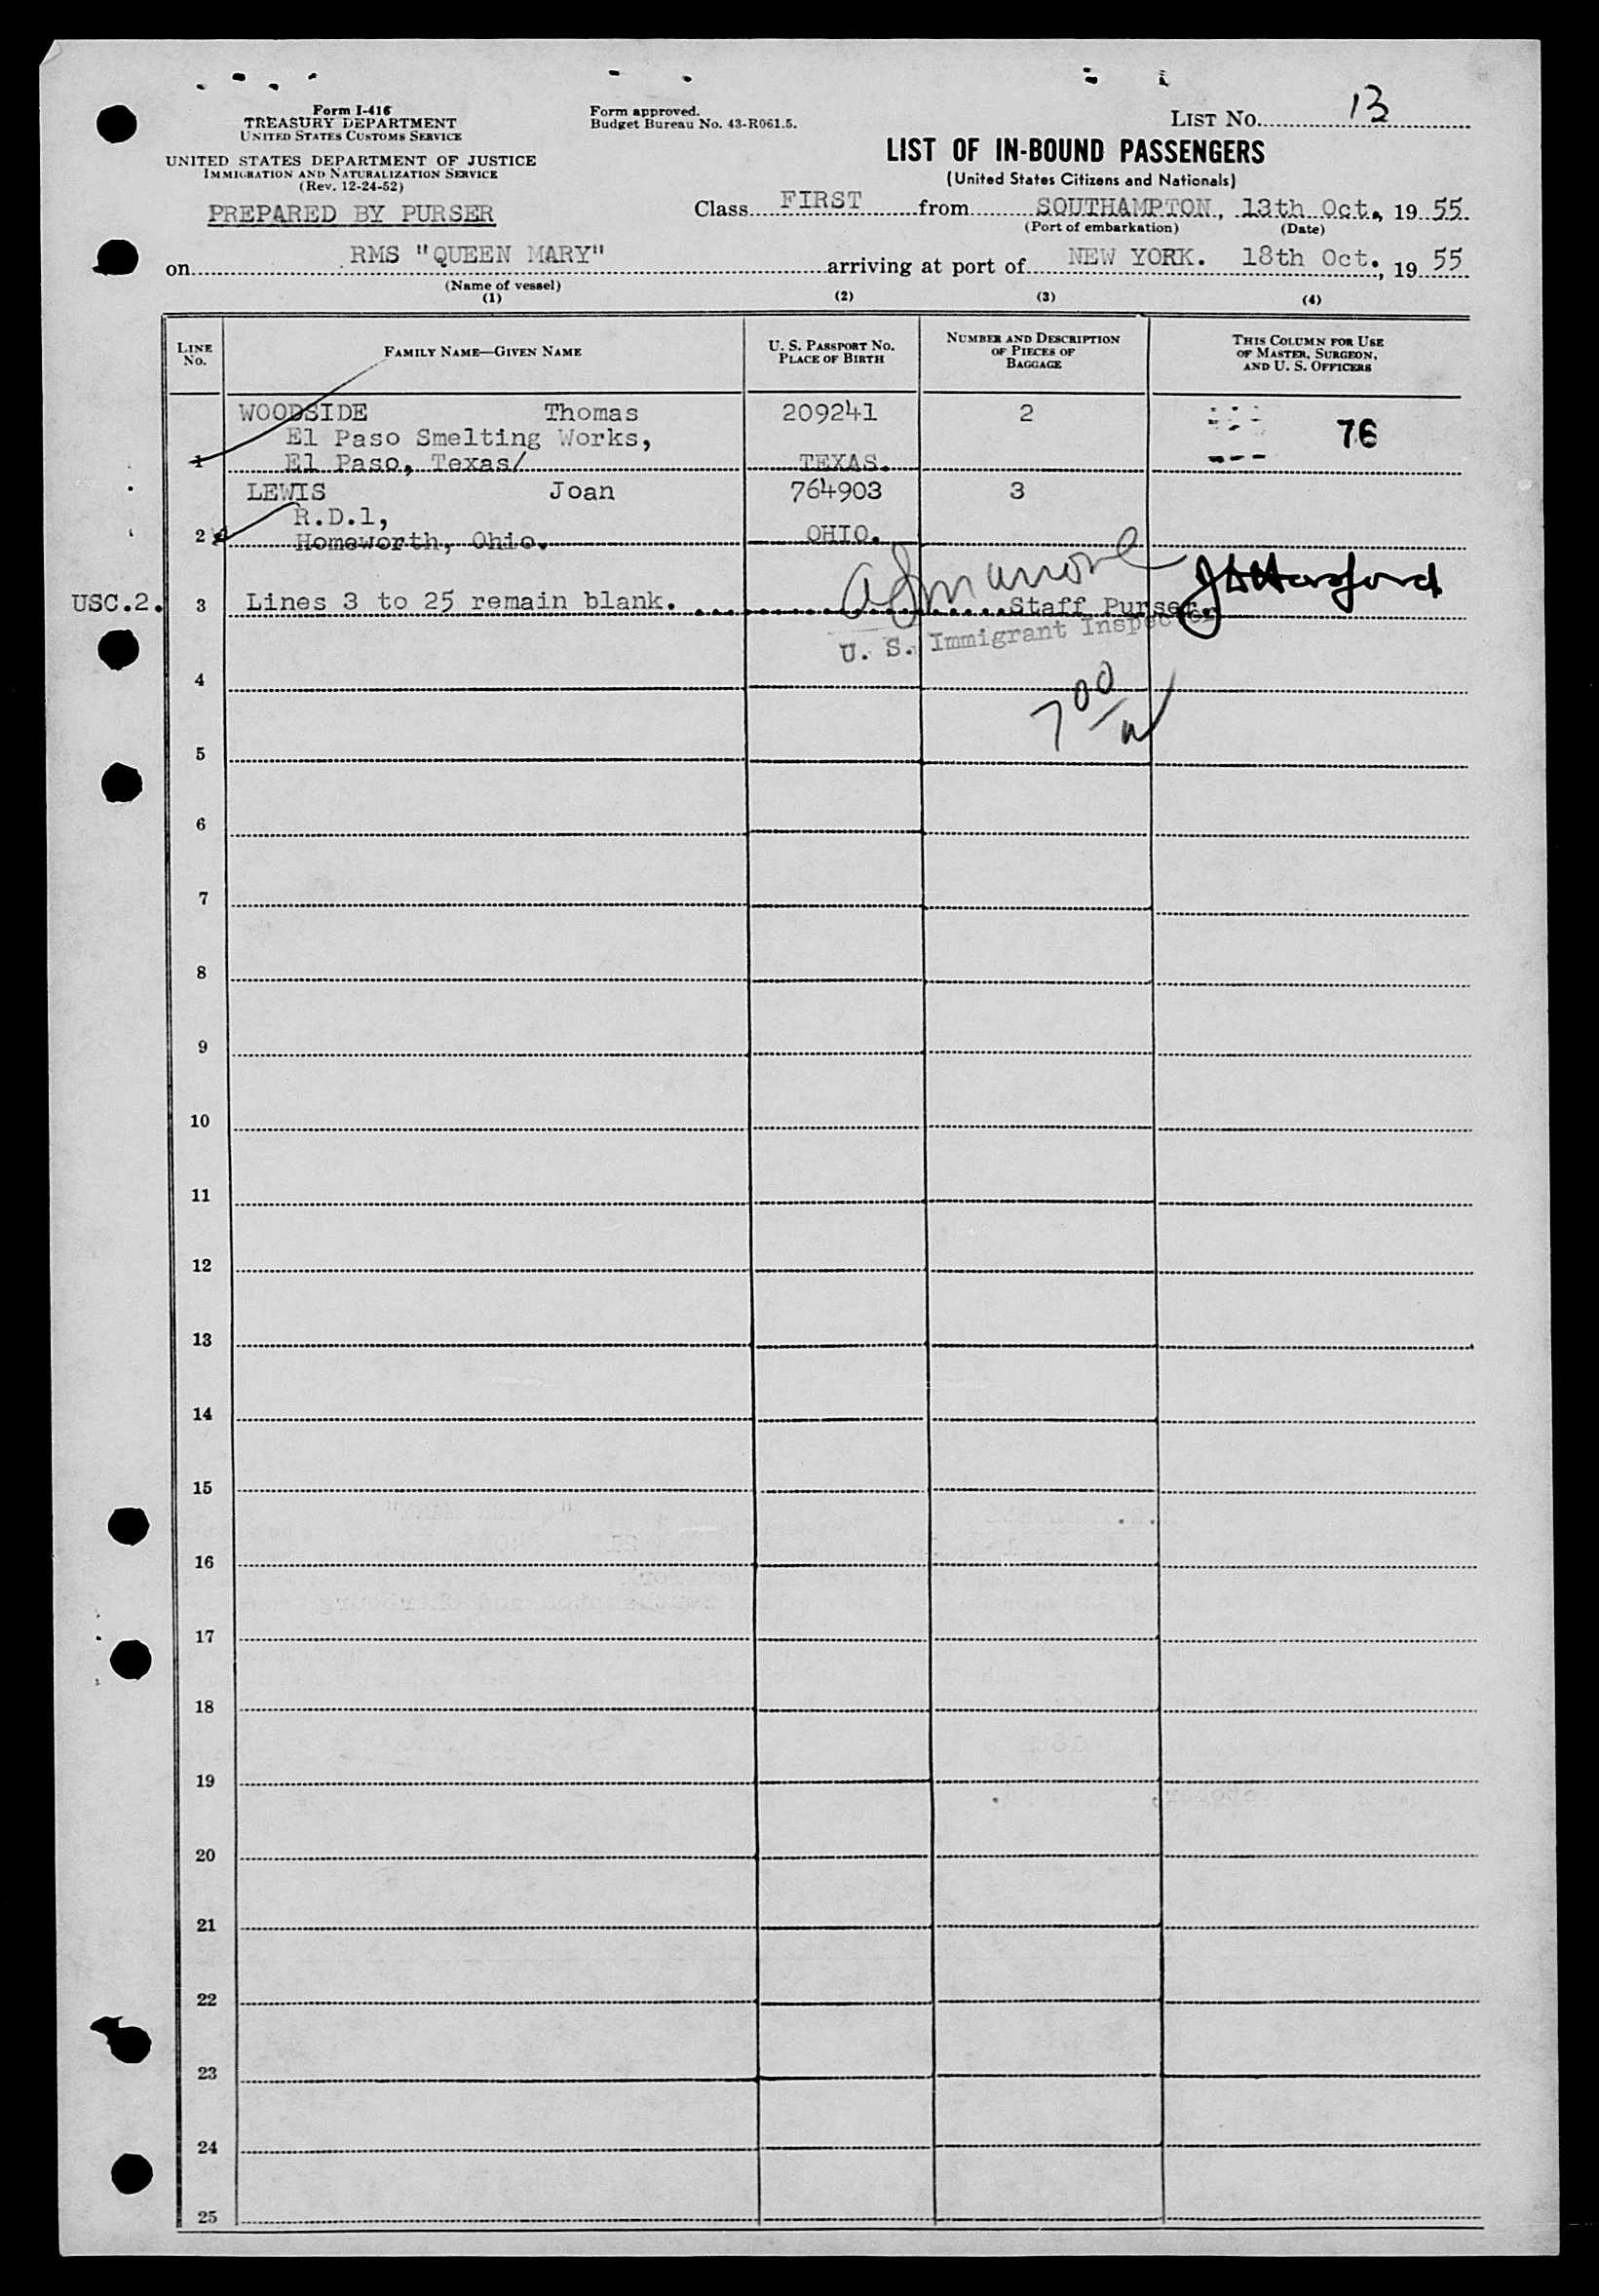 Form I-416
TREASURY DEPARTMENT
UNITED STATES CUSTOMS SERVICE
UNITED STATES DEPARTMENT OF JUSTICE
IMMIGRATION AND NATURALIZATION SERVICE
(Rev. 12-24-52)
PREPARED BY PURSER
Form approved.
Budget Bureau No. 43-R061.5.
LIST No. 13
LIST OF IN-BOUND PASSENGERS
(United States Citizens and Nationals)
Class FIRST from SOUTHAMPTON, 13th Oct., 19 55
(Port of embarkation) (Date)
on RMS "QUEEN MARY" arriving at port of NEW YORK. 18th Oct., 19 55
(Name of vessel)
(1) (2) (3) (4)
LINE No. FAMILY NAME—GIVEN NAME U. S. PASSPORT No. PLACE OF BIRTH NUMBER AND DESCRIPTION OF PIECES OF BAGGAGE THIS COLUMN FOR USE OF MASTER, SURGEON, AND U. S. OFFICERS
WOODSIDE Thomas 209241 2 76
El Paso Smelting Works,
1 El Paso, Texas/ TEXAS.
LEWIS Joan 764903 3
R.D.1,
2 Homeworth, Ohio. OHIO.
USC.2. 3 Lines 3 to 25 remain blank. Staff Purser.
U. S. Immigrant Inspector
4
700
5
6
7
8
9
10
11
12
13
14
15
16
17
18
19
20
21
22
23
24
25